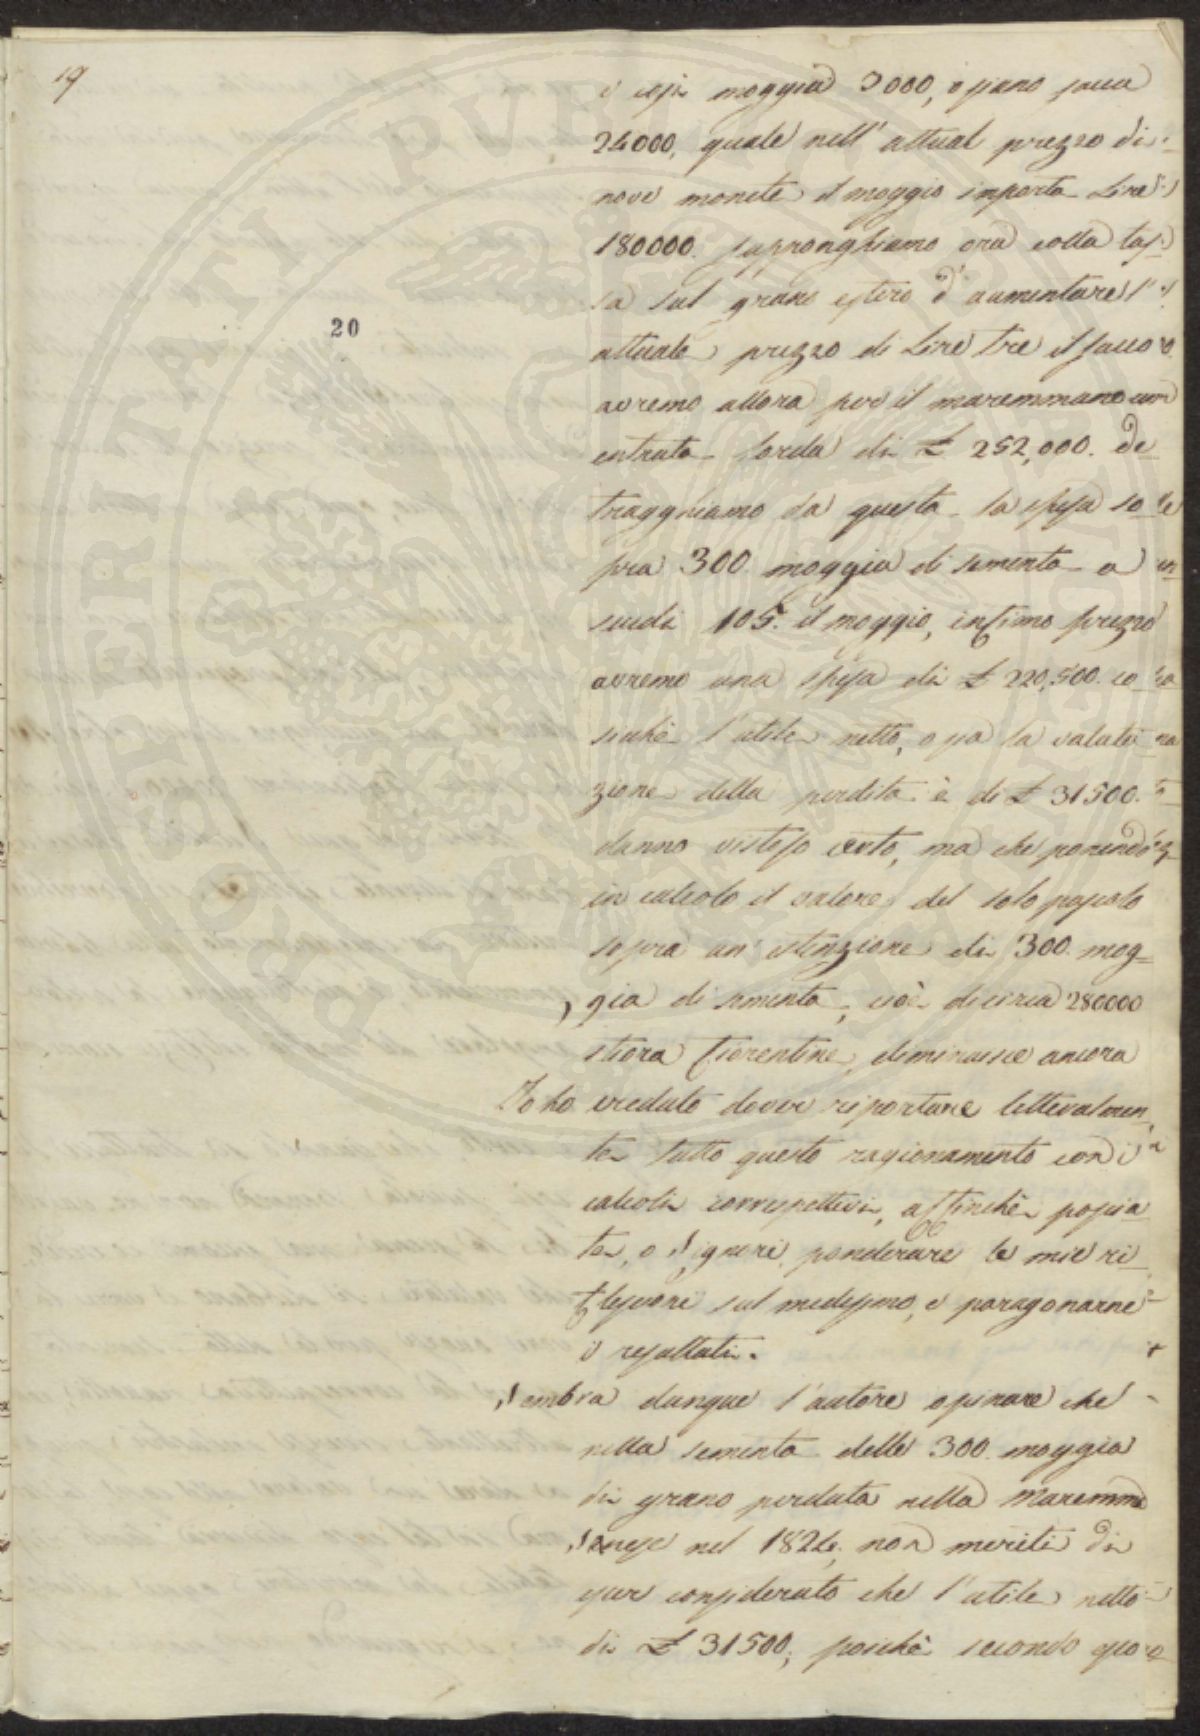 19
20
e così moggia 3000, o siano sacca
24000, quale nell' attual prezzo di
nove monete il moggio importa Lire
180000. supponghiamo ora colla tas-
sa sul grano estero d' aumentare l'
attuale prezzo di Lire tre il sacco
avremo allora per il maremmano un
entrata lorda di £ 252,000. de
tragghiamo da questa la spesa so
pra 300. moggia di sementa a
scudi 105. il moggio, infimo prezzo
avremo una spesa di £ 220,500. co
sicchè l'utile netto, o sia la valuta
zione della perdita è di £ 31500.
danno vistoso certo, ma che ponendo
in calcolo il valore del solo pascolo
sopra un' estenzione di 300. mog-
gia di sementa, cioè di circa 280000
stiora fiorentine, diminuisce ancora
Io ho creduto dover riportare letteralmen
te tutto questo ragionamento con i
calcoli corrispettivi, affinchè possia
te, o Signori, ponderare le mie ri
flessioni sul medesimo, e paragonarne
i resultati.
Sembra dunque l'autore opinare che
nella sementa delle 300. moggia
di grano perduta nella Maremma
Sanese nel 1824. non meriti di
esser considerato che l'utile netto
di £ 31500, poichè secondo esso